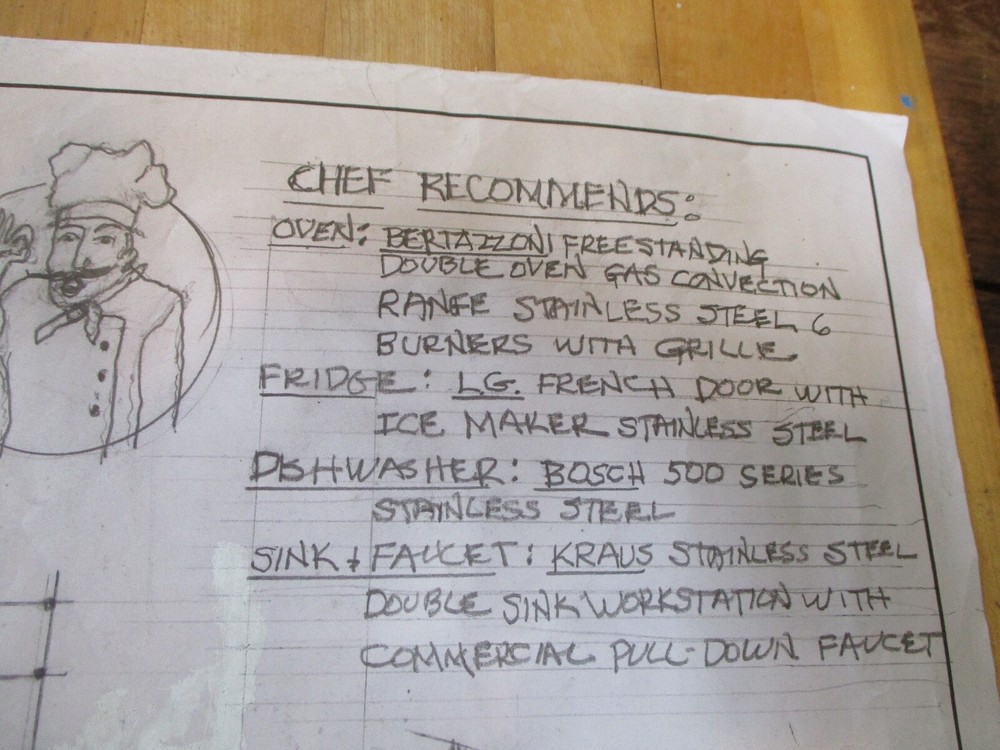 CHEF RECOMMENDS:
OVEN: BERTAZZONI FREESTANDING
DOUBLE OVEN GAS CONVECTION
RANGE STAINLESS STEEL 6
BURNERS WITH GRILLE
FRIDGE: LG. FRENCH DOOR WITH
ICE MAKER STAINLESS STEEL
DISHWASHER: BOSCH 500 SERIES
STAINLESS STEEL
SINK & FAUCET: KRAUS STAINLESS STEEL
DOUBLE SINK WORKSTATION WITH
COMMERCIAL PULL-DOWN FAUCET